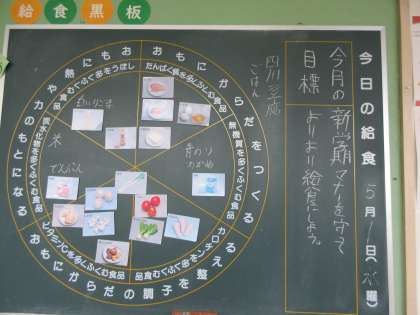 給食黒板
今日の給食 5月1日(水曜)
今月の目標
新学期マナーを守って
よりよい給食にしましょう。
四川豆腐
ごはん
おもにからだをつくる
たんぱく質を多くふくむ食品
無機質を多くふくむ食品
おもにからだの調子を整える
カロチンを多くふくむ食品
ビタミンCを多くふくむ食品
おもに熱や力のもとになる
炭水化物を多くふくむ食品
しぼうを多くふくむ食品
米
でんぷん